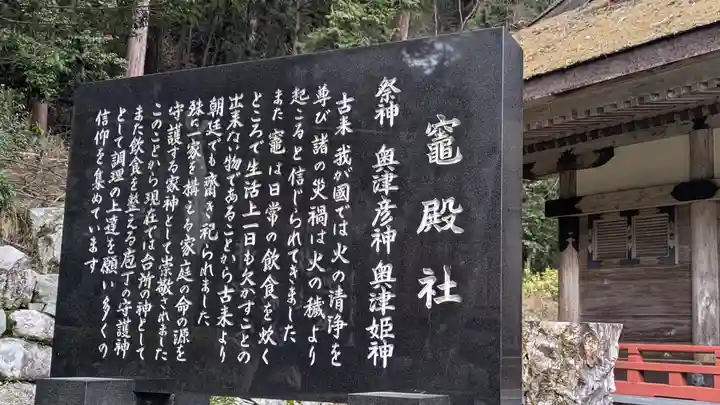 竈殿社
祭神 奥津彦神 奥津姫神
古来 我が國では 火の清浄を
尊び 諸の災禍は 火の穢より
起こると 信じられてきました
また 竈は 日常の飲食を 炊く
ところで 生活上一日も欠かすことの
出来ない物であることから古来より
朝廷でも 齋き祀られました
殊に一家を構える家庭の命の源を
守護する家神として崇敬されました
このことから現在では台所の神として
また飲食を整える庖丁の守護神
として調理の上達を願い多くの
信仰を集めています